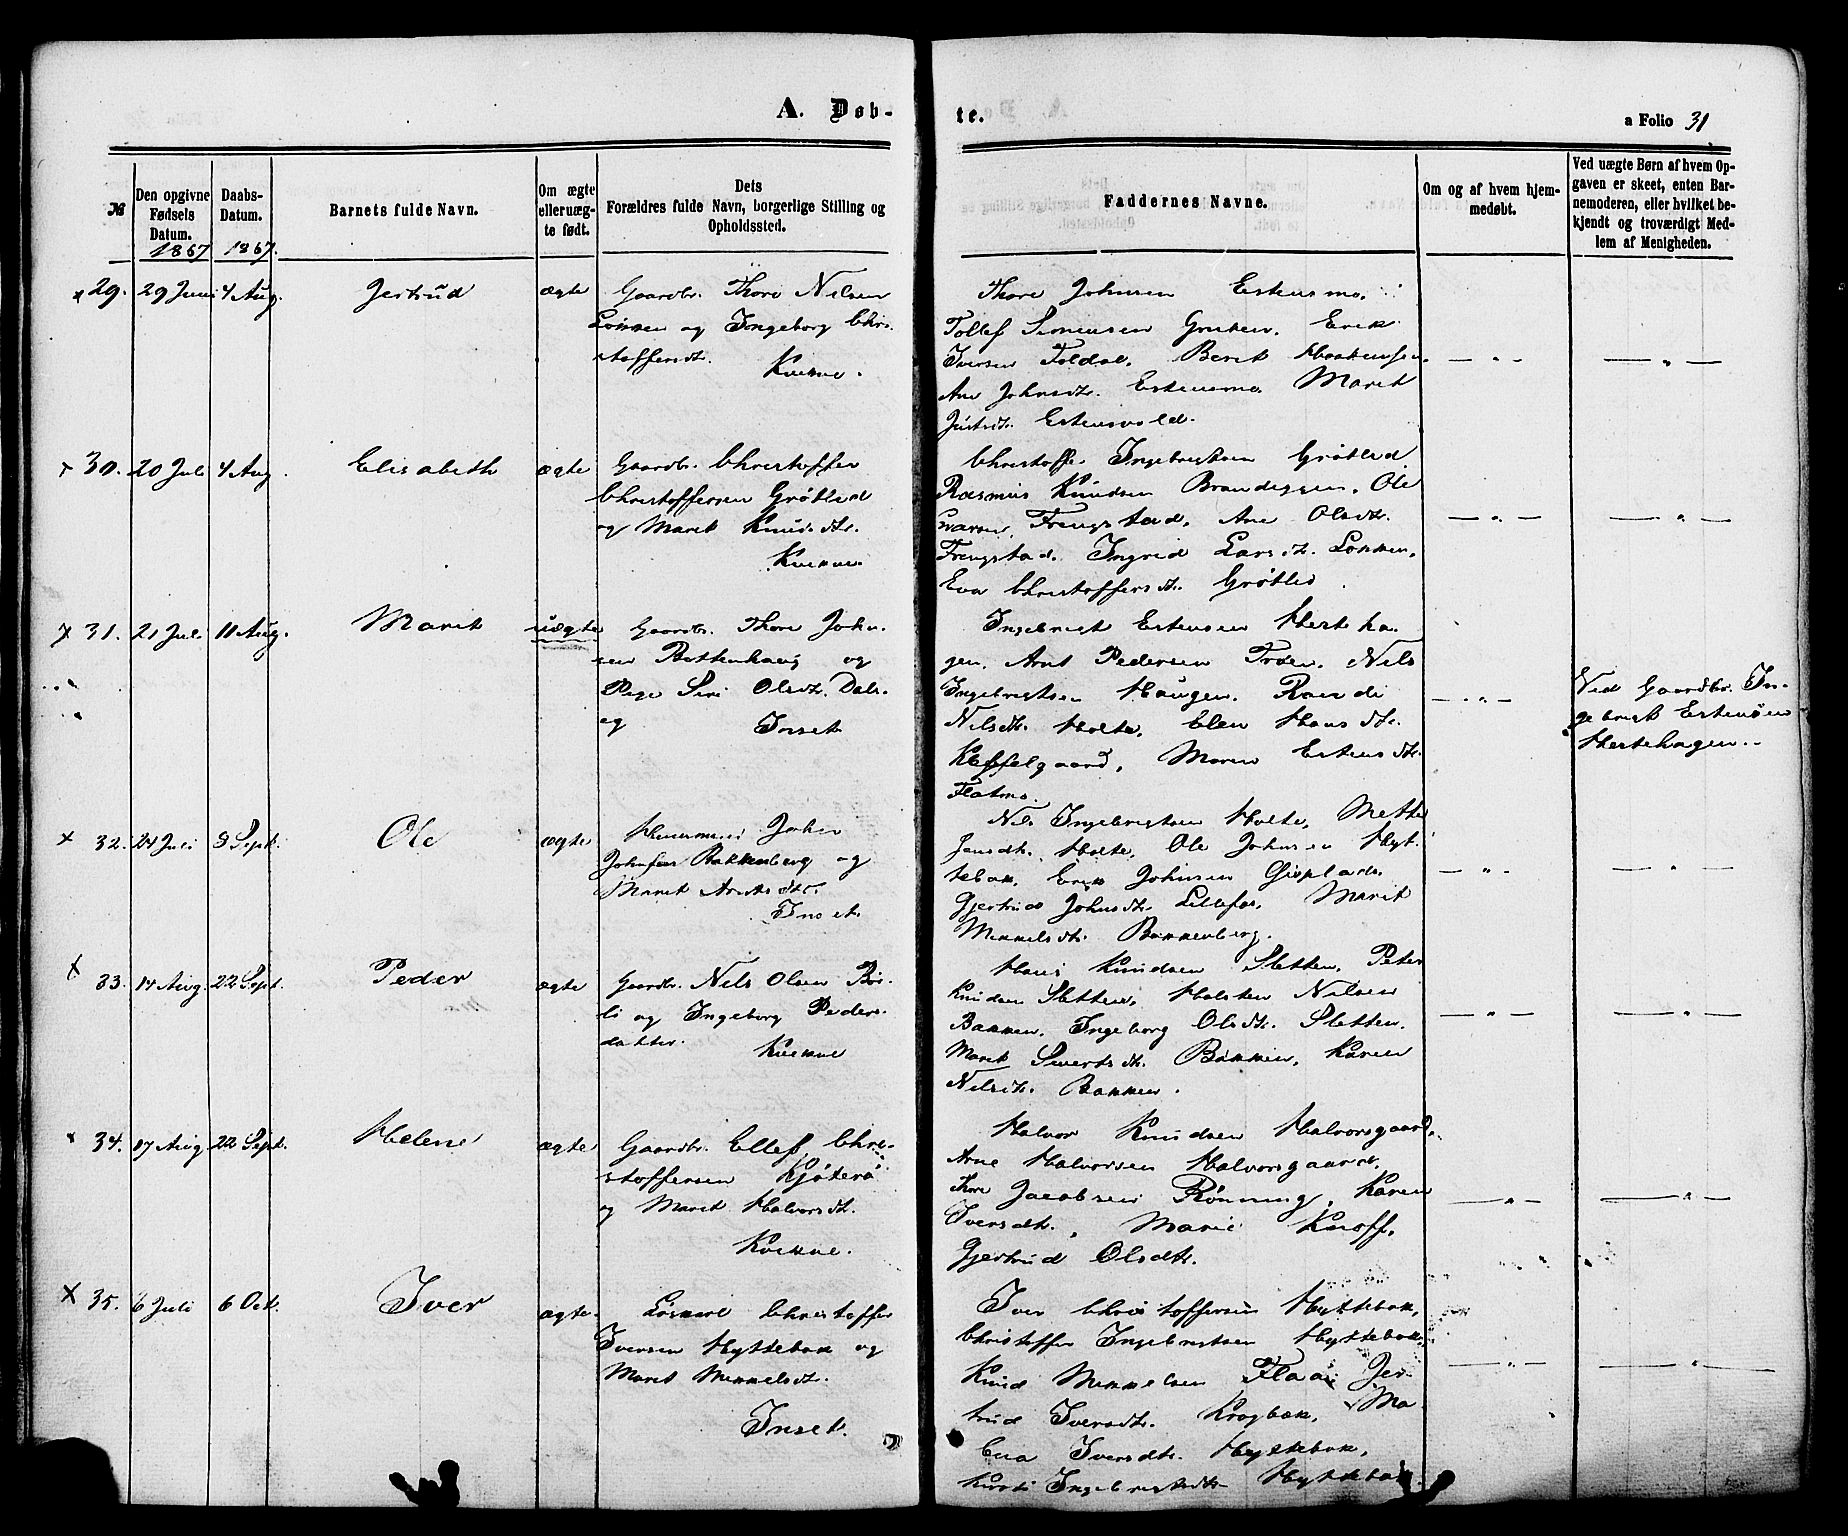 A. Døb-
te.
a Folio 31
№
Den opgivne
Fødsels
Datum.
1867
Daabs-
Datum.
1867.
Barnets fulde Navn.
Om ægte
eller uæg-
te født.
Dets
Forældres fulde Navn, borgerlige Stilling og
Opholdssted.
Faddernes Navne.
Om og af hvem hjem-
medøbt.
Ved uægte Børn af hvem Op-
gaven er skeet, enten Bar-
nemoderen, eller hvilket be-
kjendt og troværdigt Med-
lem af Menigheden.
29. 29 Juni 4 Aug. Jertrud ægte
Gaardbr. Thore Nilsen
Lonken og Ingeborg Chri-
stoffersdt.
Kvikne.
Thore Johnsen Estensmo.
Tollef Simensen Gruben. Erik
Iversen Foldal. Berit Haakensen
Ane Johnsdt. Estensmo Marit
Justsdt. Estensvold.
30. 20 Juli 4 Aug. Elisabeth ægte
Gaardbr. Christoffer
Christoffersen Grøtlid
og Marit Knudsdtr.
Kvikne.
Christoffer Ingebrigtsen Grøtlid
Rasmus Knudsen Brandeggen. Ole
Frengstad. Ane Olsdt.
Frengstad. Ingrid Larsdt. Lonken.
Eva Christoffersdt. Grøtlid.
31. 21 Jul. 11 Aug. Marit uægte
Gaardbr. Thore John-
sen Bottenhaug og
Pige Siri Olsdt. Dals-
eg
Inset
Ingebrigt Estensen Herteha-
gen. Arnt Pedersen Trøen. Nils
Ingebrigtsen Haugen. Randi
Nilsdt. Holte. Elen Hansdt.
Keffelgaard, Maren Estensdt.
Flatmo.
Ved Gaardbr. In-
gebrigt Estensen
Hertehagen.
32. 24 Juli 8 Sept. Ole ægte
Huusmand John
Johnsen Bakkenberg og
Marit Arntsdt.
Inset.
Nils Ingebrigtsen Holte, Mette
Jensdt. Holte. Ole Johnsen Hyt-
tebak. Erik Johnsen Gisplads.
Gjertrud Johnsdt. Lillefos. Marit
Mikkelsdt. Bakkenberg.
33. 14 Aug. 22 Sept. Peder ægte
Gaardbr. Nils Olsen Bør-
li og Ingeborg Peders-
datter.
Kvikne
Hans Knudsen Sletten, Peter
Knudsen Sletten. Halsten Nilsen
Bakken. Ingeborg Olsdt. Sletten.
Marit Sivertsdt. Bakken. Karen
Nilsdt. Bakken.
34. 17 Aug. 22 Sept. Helene ægte
Gaardbr. Ellef Chri-
stoffersen Kjøterø
og Marit Halvorsdt.
Kvikne.
Halvor Knudsen Halvorsgaard.
Arne Halvorsen Halvorsgaard.
Thore Jacobsen Rønning, Karen
Iversdt., Marie Knoff,
Gjertrud Olsdt.
35. 6 Juli 6 Oct. Iver ægte
Løskarl Christoffer
Iversen Hyttebak og
Marit Mikkelsdt.
Inset.
Iver Christoffersen Hyttebak,
Christoffer Ingebrigtsen Hyttebak,
Knud Mikkelsen Flaai Jer-
trud Iversdt. Krogbæk, Ma
Eva Iversdt. Hyttebak,
Kirsti Ingebrigtsdt. Hyttebak.